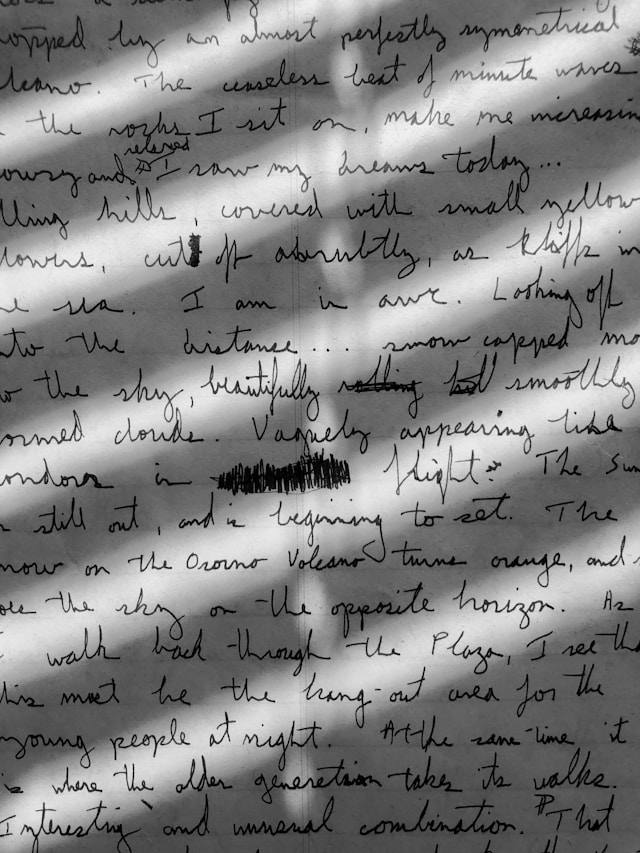 topped by an almost perfectly symmetrical
lcano. The ceaseless beat of minute waves
the rocks I sit on, make me increasin
relaxed
owsy and I saw my dreams today...
lling hills, covered with small yellow
lowers, cut off aburubtly, as kliffs in
he sea. I am in awe. Looking off
nto the distance.... snow capped mo
o the sky, beautifully smoothly
ormed clouds. Vaguely appearing like
ondors in flight. The Sun
is still out, and is beginning to set. The
now on the Osorno Volcano turns orange, and
oes the sky on the opposite horizon. As
I walk back through the Plaza, I see tha
his must be the hang-out area for the
young people at night. At the same time it
is where the older generation takes its walks.
Interesting and unusual combination. ¶That